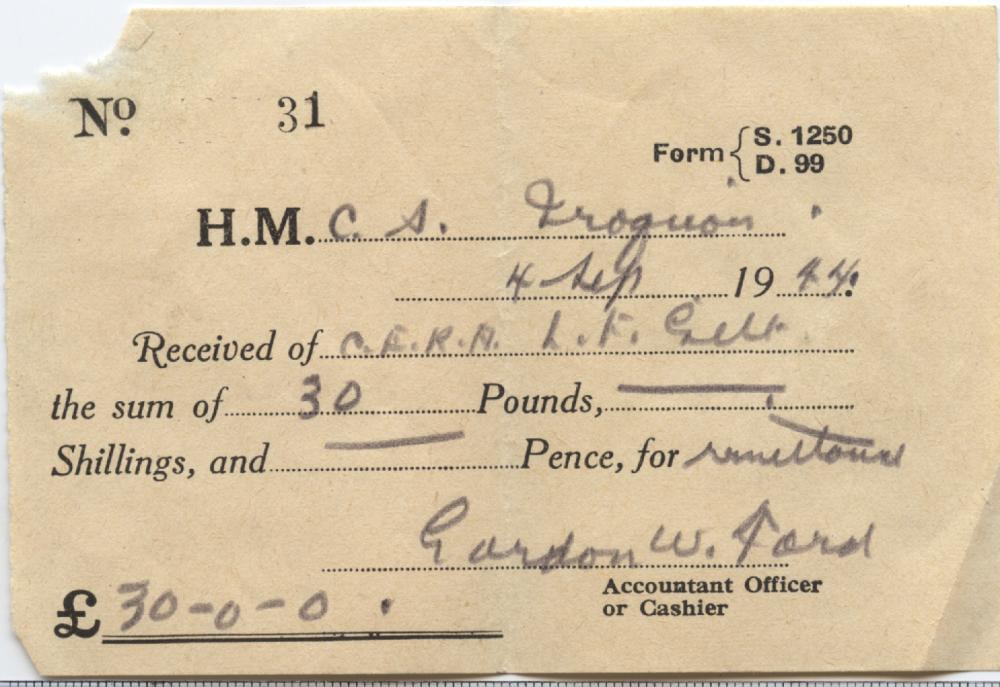 Nº. 31
Form { S. 1250
D. 99
H.M. C. S. Iroquois
4 Sep 1944.
Received of C.E.R.A. L. F.
the sum of 30 Pounds, —
Shillings, and — Pence, for remittance
Gordon W. Ford
Accountant Officer
or Cashier
£ 30-0-0.